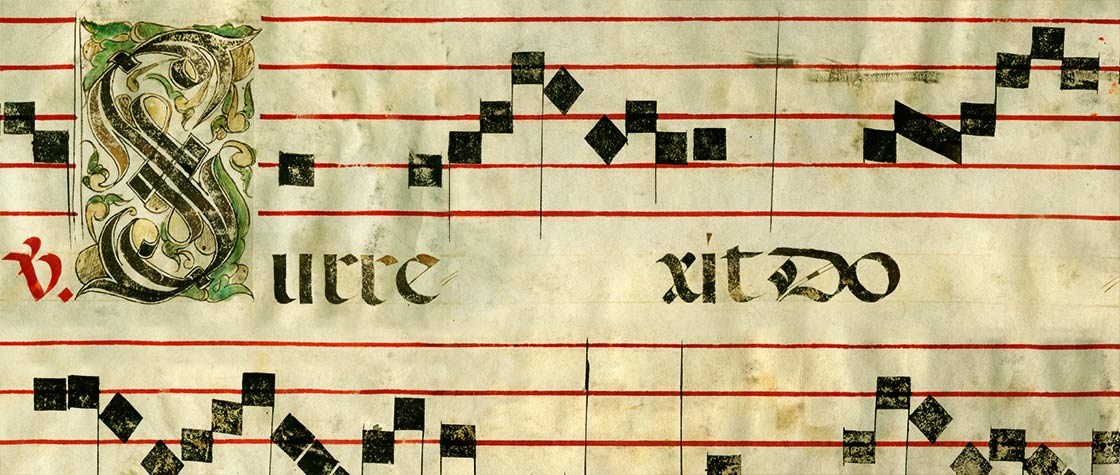 V. Surre xit Do